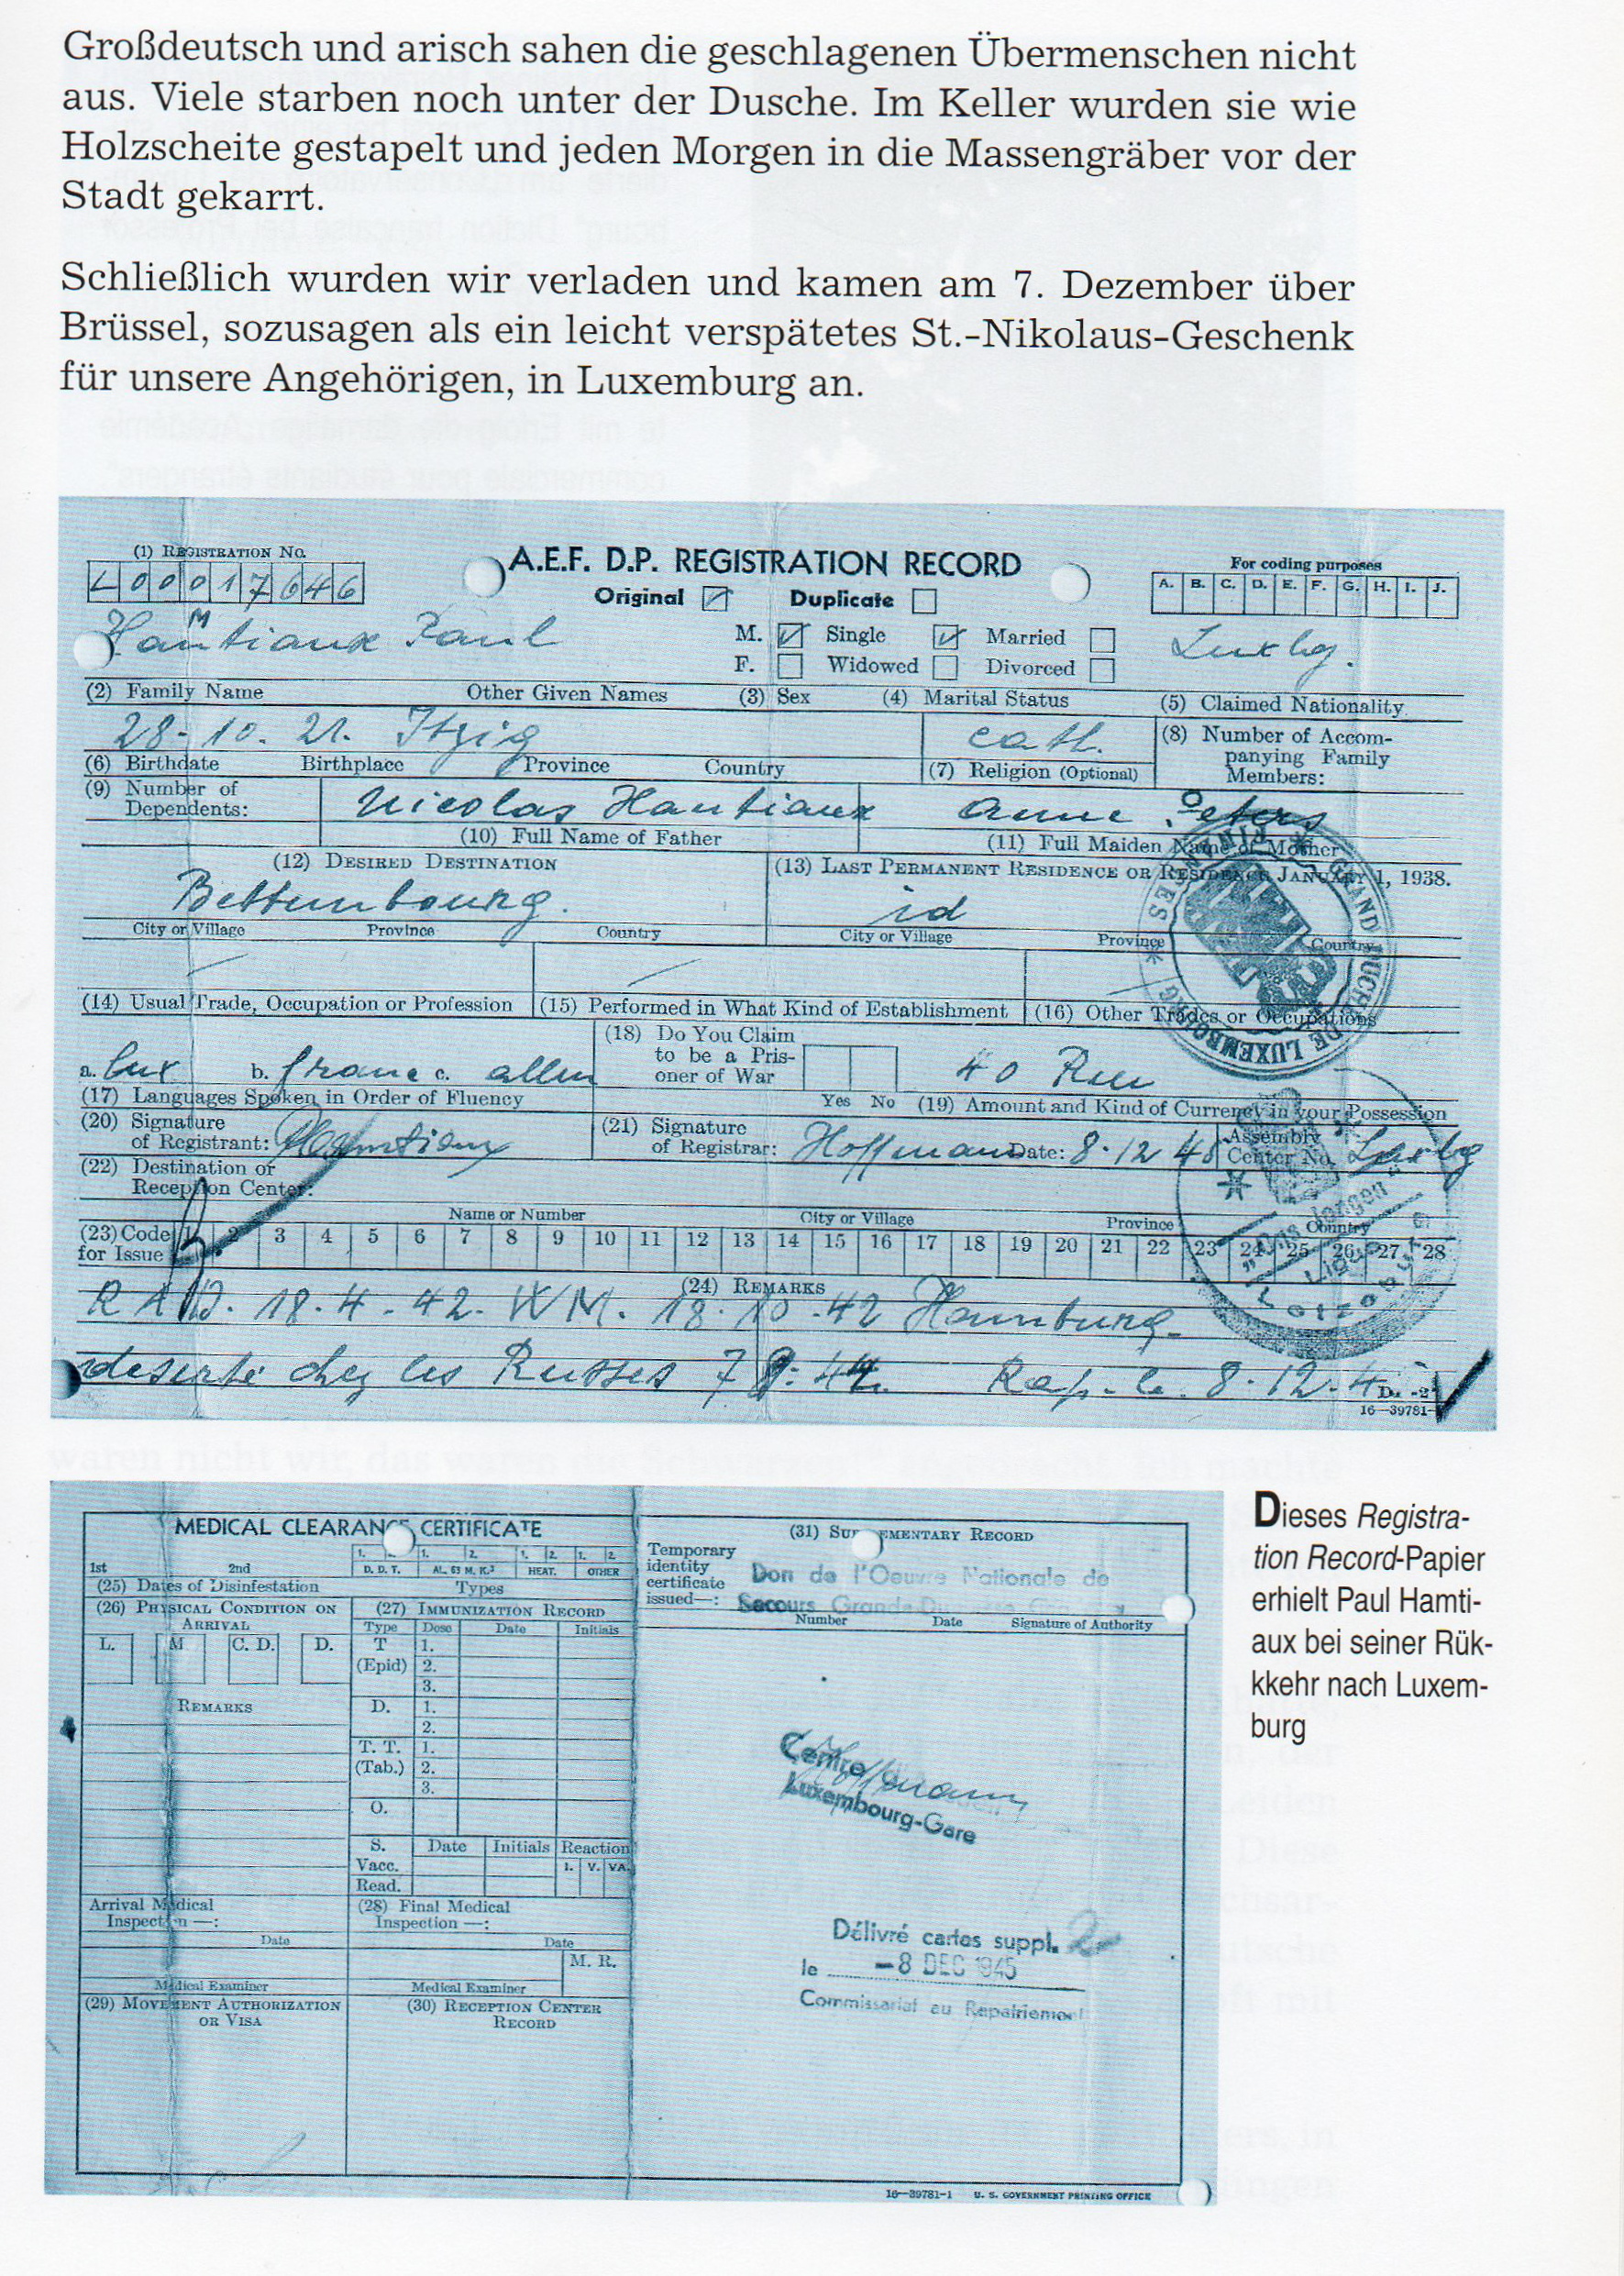 Großdeutsch und arisch sahen die geschlagenen Übermenschen nicht
aus. Viele starben noch unter der Dusche. Im Keller wurden sie wie
Holzscheite gestapelt und jeden Morgen in die Massengräber vor der
Stadt gekarrt.
Schließlich wurden wir verladen und kamen am 7. Dezember über
Brüssel, sozusagen als ein leicht verspätetes St.-Nikolaus-Geschenk
für unsere Angehörigen, in Luxemburg an.
(1) REGISTRATION No.
L00017646
A.E.F. D.P. REGISTRATION RECORD
Original Duplicate
For coding purposes
A. B. C. D. E. F. G. H. I. J.
Hamtiaux Paul
M. Single Married
F. Widowed Divorced
Luxbg.
(2) Family Name Other Given Names (3) Sex (4) Marital Status (5) Claimed Nationality
28-10. 21. Itzig
cath.
(8) Number of Accompanying Family Members:
(6) Birthdate Birthplace Province Country (7) Religion (Optional)
(9) Number of Dependents:
Nicolas Hamtiaux Anne Peters
(10) Full Name of Father (11) Full Maiden Name of Mother
(12) DESIRED DESTINATION (13) LAST PERMANENT RESIDENCE OR RESIDENCE JANUARY 1, 1938.
Bettembourg. id
City or Village Province Country City or Village Province Country
(14) Usual Trade, Occupation or Profession (15) Performed in What Kind of Establishment (16) Other Trades or Occupations
a. lux b. franc c. allem
(18) Do You Claim to be a Prisoner of War
Yes No
(17) Languages Spoken in Order of Fluency
(19) Amount and Kind of Currency in your Possession
(20) Signature of Registrant:
(21) Signature of Registrar: Hoffmann Date: 8.12 45 Assembly Center No. Luxbg
(22) Destination or Reception Center:
Name or Number City or Village Province Country
(23) Code for Issue 1 2 3 4 5 6 7 8 9 10 11 12 13 14 15 16 17 18 19 20 21 22 23 24 25 26 27 28
(24) REMARKS
RAD. 18.4.42. WM. 18.10.42 Hamburg
deserté chez les Russes 7 8. 44. Rap. le 8.12.4
16—39781-
GRAND DUCHE DE LUXEMBOURG
MEDICAL CLEARANCE CERTIFICATE
1st 2nd
1. 2. 1. 2. 1. 2. 1. 2.
D. D. T. AL. 63 M. K.³ HEAT. OTHER
(25) Dates of Disinfestation Types
(26) PHYSICAL CONDITION ON ARRIVAL
L. M C. D. D.
REMARKS
(27) IMMUNIZATION RECORD
Type Dose Date Initials
T (Epid) 1. 2. 3.
D. 1. 2.
T. T. (Tab.) 1. 2. 3.
O.
S. Date Initials Reaction
Vacc. I. V. VA.
Read.
Arrival Medical Inspection —:
Date
Medical Examiner
(28) Final Medical Inspection —:
Date
M. R.
Medical Examiner
(29) MOVEMENT AUTHORIZATION OR VISA
(30) RECEPTION CENTER RECORD
(31) SUPPLEMENTARY RECORD
Temporary identity certificate issued—:
Don de l'Oeuvre Nationale de
Secours Grande-Duchesse
Number Date Signature of Authority
Centre
Hoffmann
Luxembourg-Gare
Délivré cartes suppl. 2
le -8 DEC 1945
Commissariat au Rapatriement
16—39781-1 U. S. GOVERNMENT PRINTING OFFICE
Dieses Registra-
tion Record-Papier
erhielt Paul Hamti-
aux bei seiner Rük-
kkehr nach Luxem-
burg